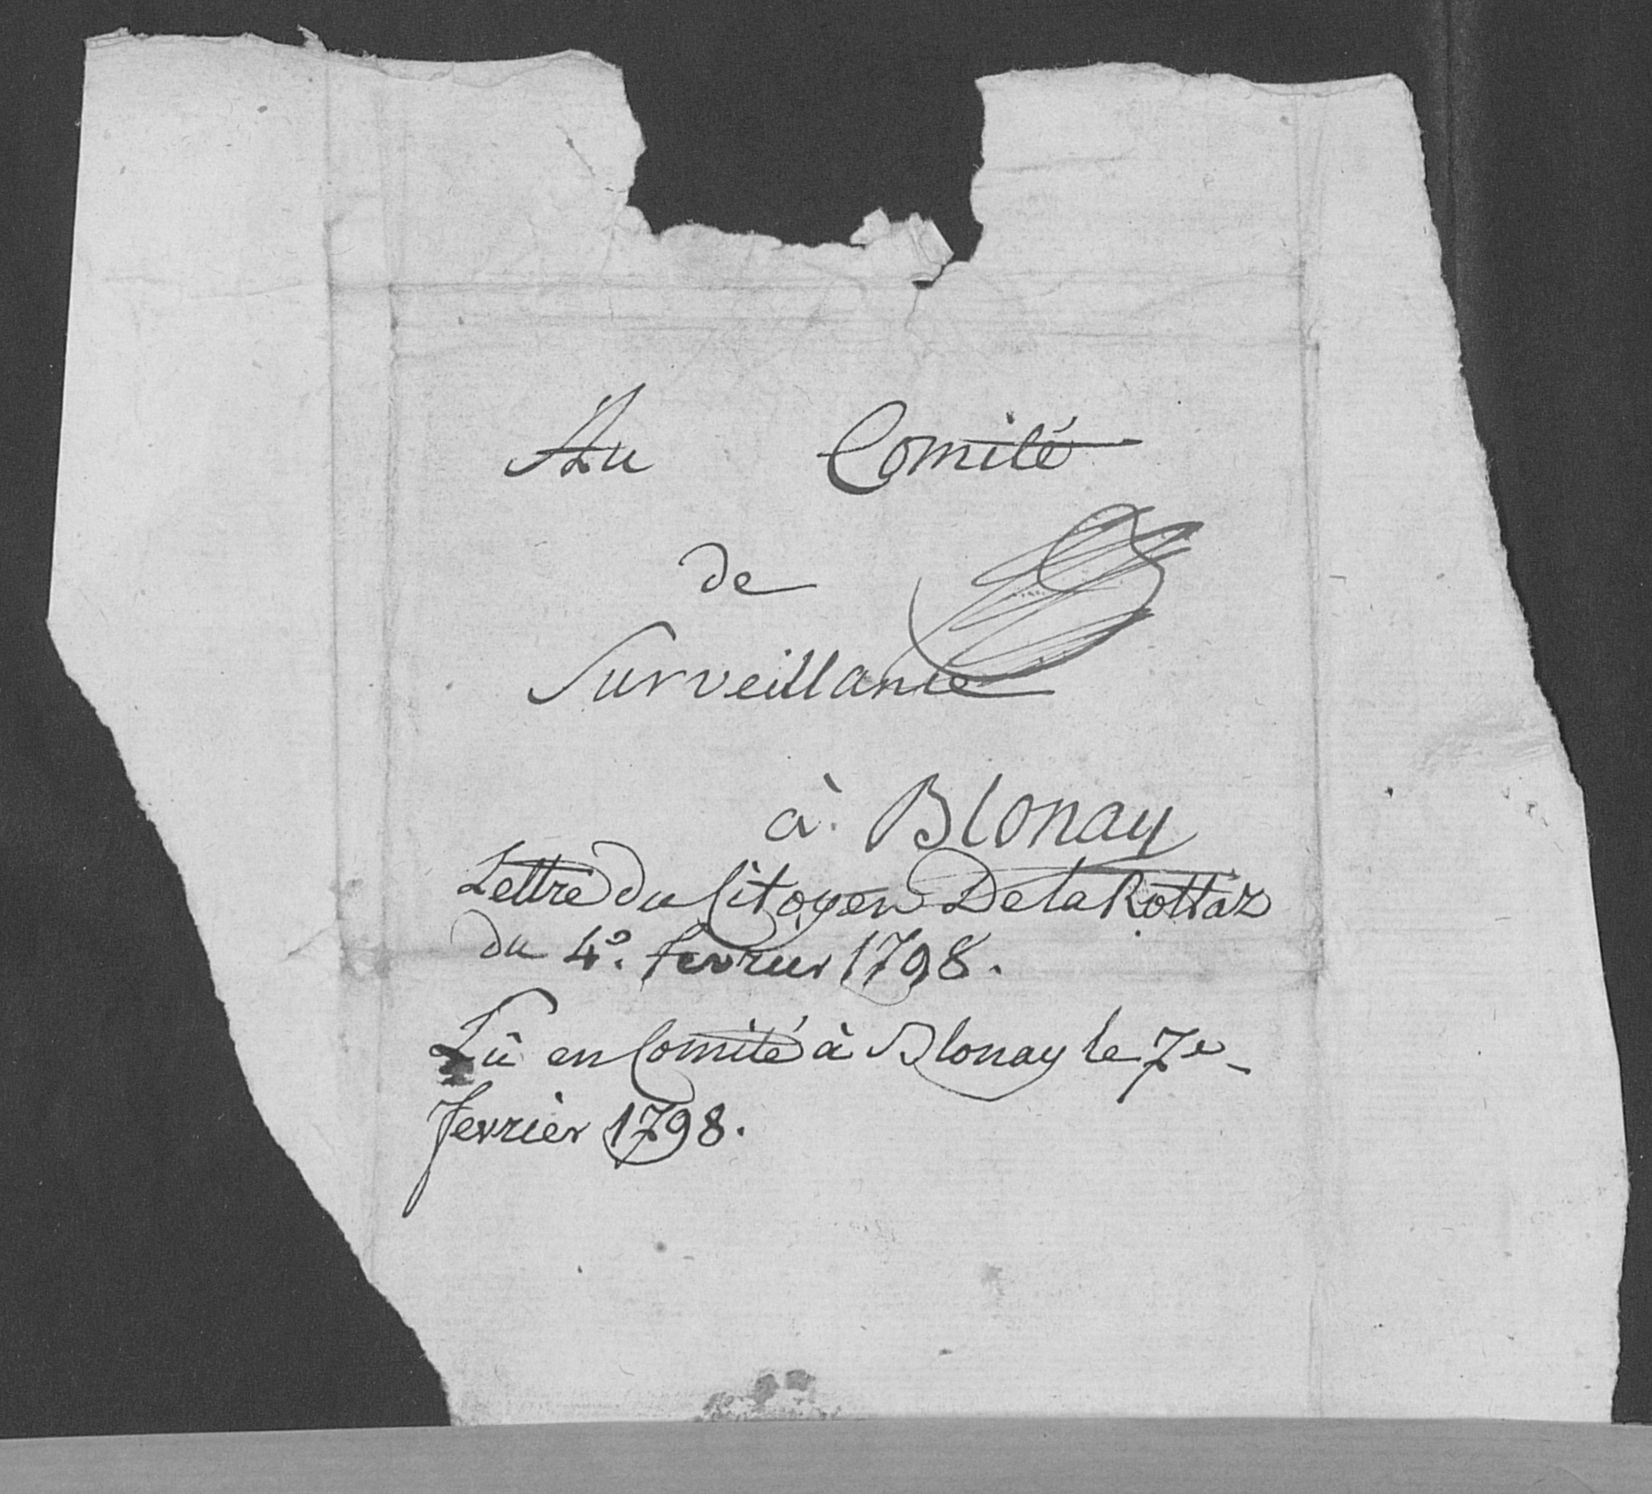 Au Comité
de
Surveillance
à Blonay
Lettre du Citoyen De la Rottaz
du 4e. fevrier 1798.
Lû en Comité à Blonay le 7e
fevrier 1798.